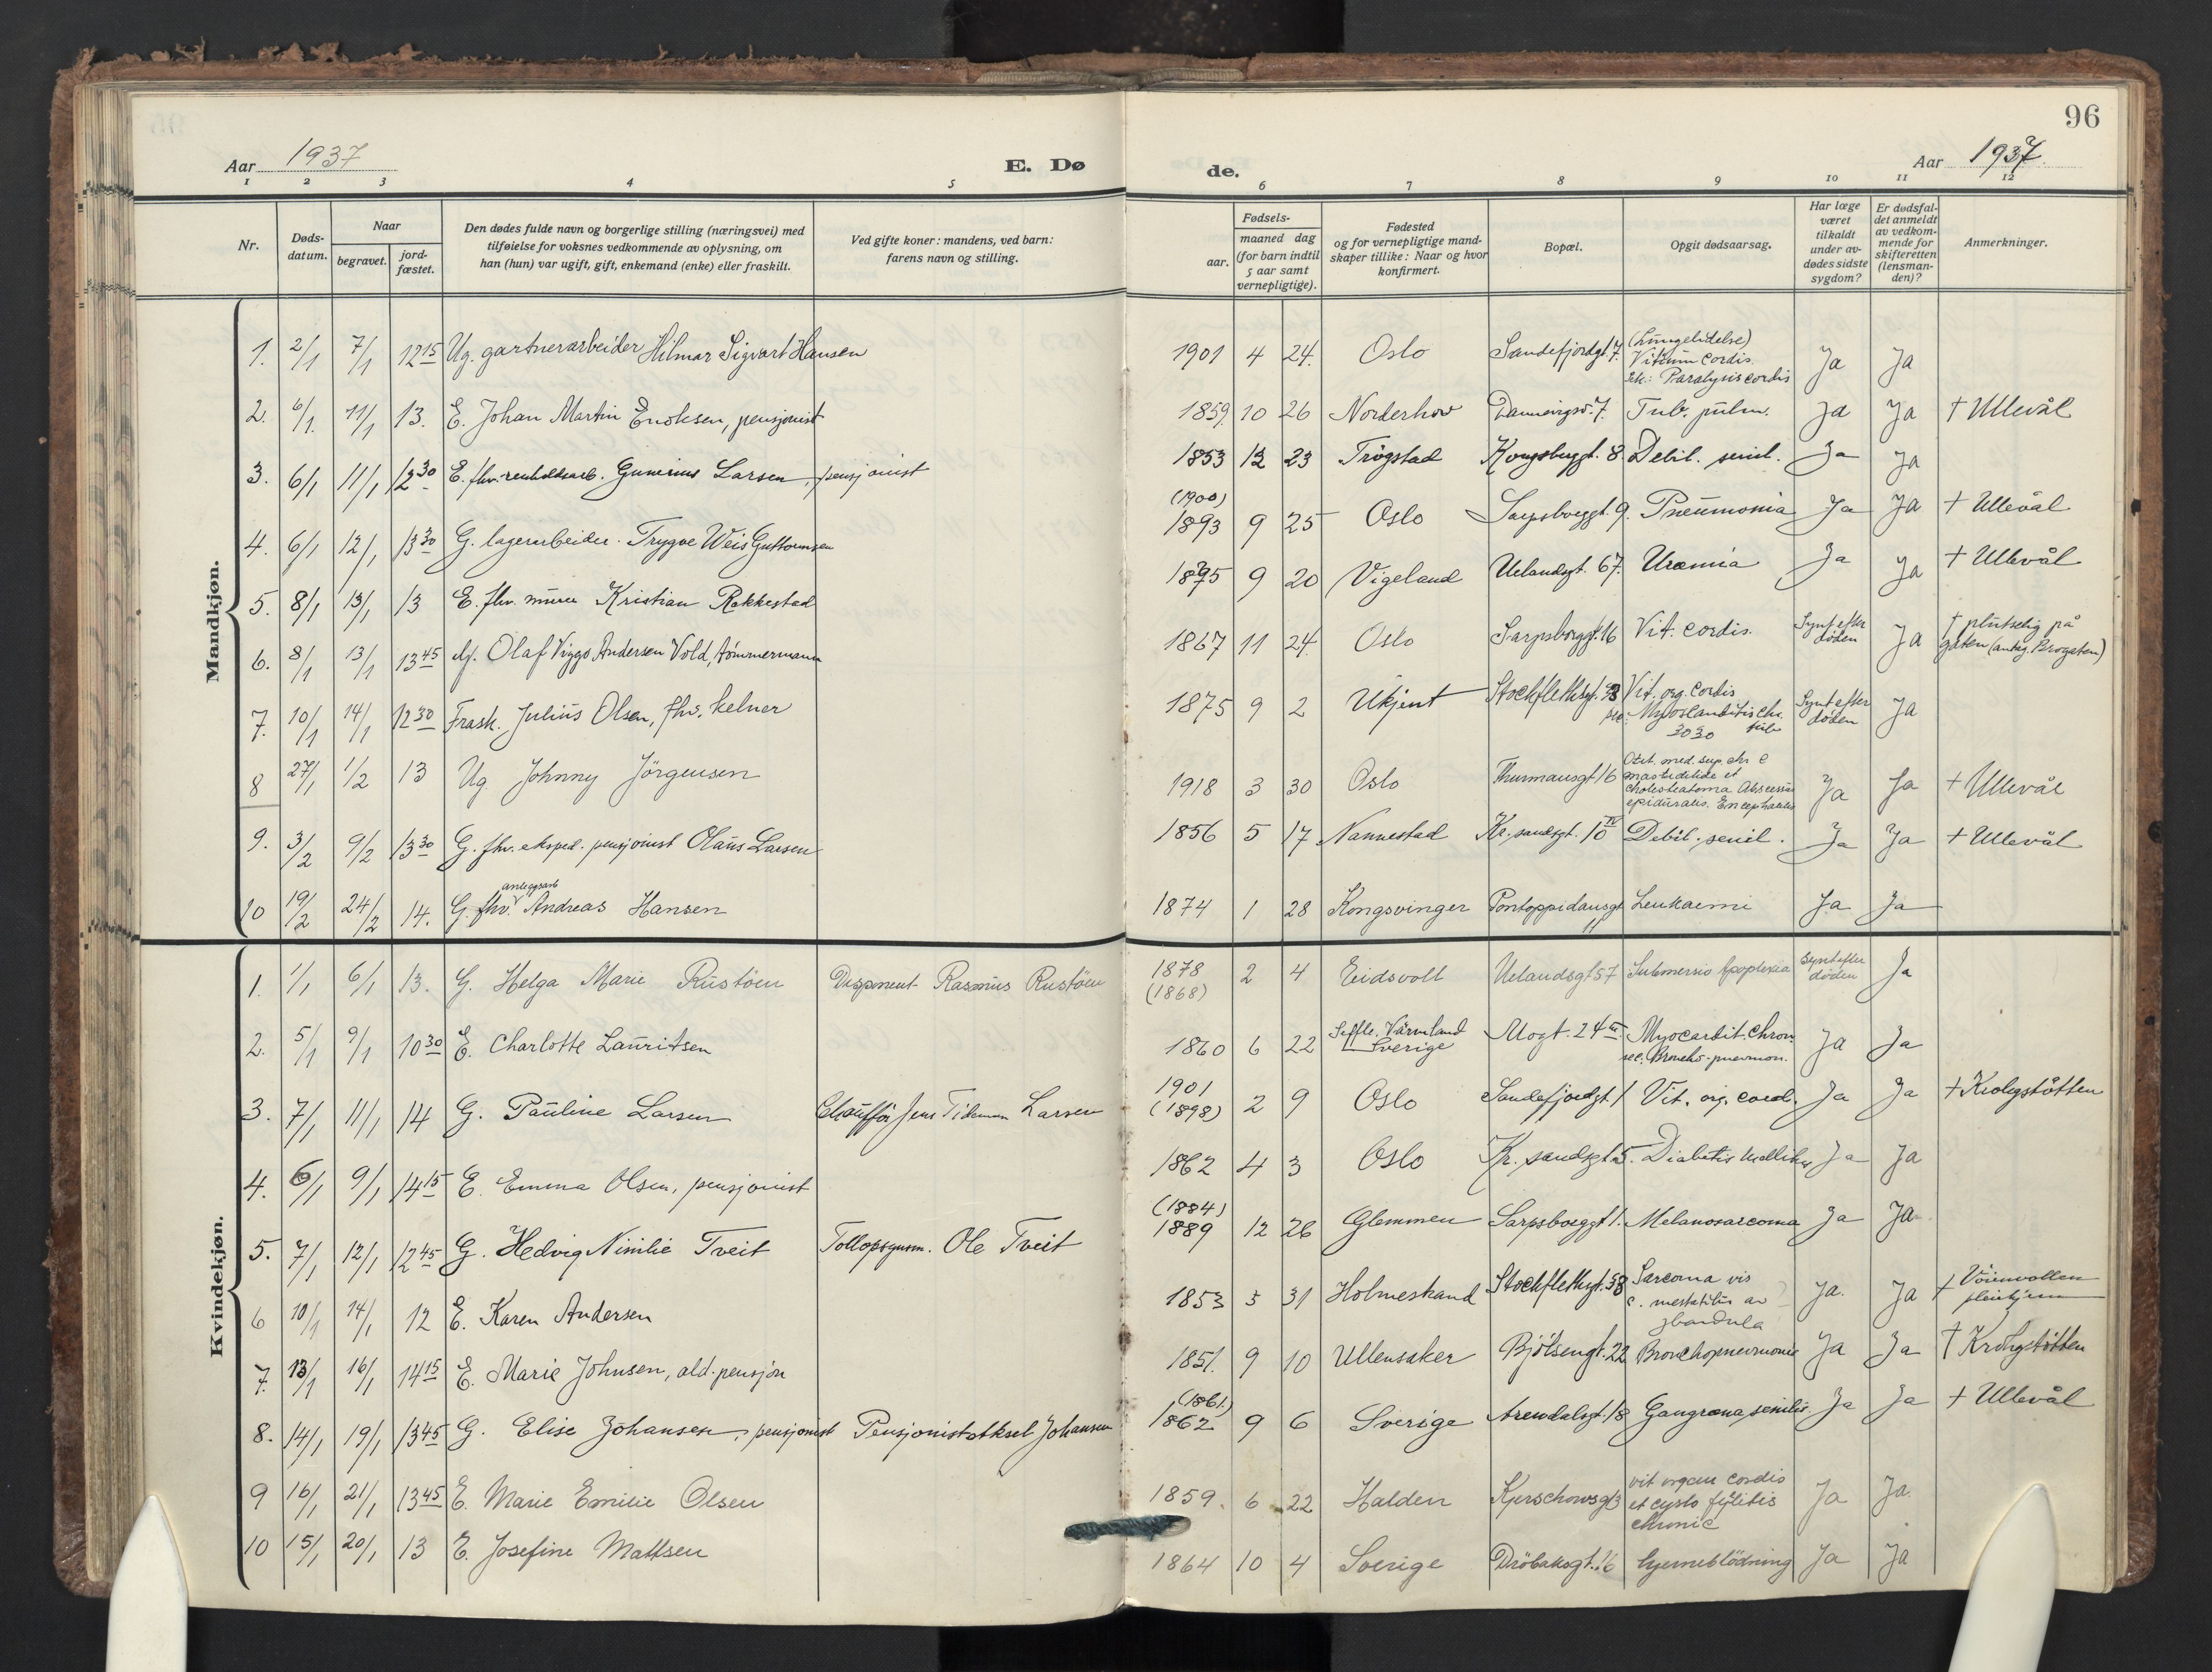 96
Aar 1937
E. Dø
de.
Aar 1937
1 2 3 4 5 6 7 8 9 10 11 12
Nr.
Døds-
datum.
Naar
begravet.
jord-
fæstet.
Den dødes fulde navn og borgerlige stilling (næringsvei) med
tilføielse for voksnes vedkommende av oplysning, om
han (hun) var ugift, gift, enkemand (enke) eller fraskilt.
Ved gifte koner: mandens, ved barn:
farens navn og stilling.
Fødsels-
aar.
maaned dag
(for barn indtil
5 aar samt
vernepligtige).
Fødested
og for vernepligtige mand-
skaper tillike: Naar og hvor
konfirmert.
Bopæl.
Opgit dødsaarsag.
Har læge
været
tilkaldt
under av-
dødes sidste
sygdom?
Er dødsfal-
det anmeldt
av vedkom-
mende for
skifteretten
(lensman-
den)?
Anmerkninger.
Mandkjøn.
1. 2/1 7/1 12 15 Ug. gartnerarbeider Hilmar Sigvart Hansen 1901 4 24. Oslo Sandefjordgt. 7. (Lungelidelse)
Vitium cordis.
sek: Paralysis cordis Ja Ja
2. 6/1. 11/1 13. E. Johan Martin Enoksen, pensjonist 1859. 10 26 Norderhov 7. Tub. pulm. Ja Ja † Ullevål
3. 6/1 11/1 12 30 E. fhv. renholdsarb. Gunerius Larsen, pensjonist 1853 12 23 Trögstad Kongsbggt. 8 Debil. senil. Ja Ja
4. 6/1 12/1 13 30 G. lagerarbeider. Trygve Weis Guttormsen (1900)
1893 9 25 Oslo Sarpsborggt. 9. Pneumonia Ja Ja † Ullevål
5. 8/1 13/1 13 E. fhv. murer Kristian Rakkestad 1875 9 20 Vigeland Uelandsgt. 67. Uræmia Ja Ja † Ullevål
6. 8/1 13/1 13 45 Olaf Viggo Andersen Vold, tömmermann 1867 11 24. Oslo Sarpsborggt. 16 Vit. cordis. Synt efter
döden Ja † plutselig på
gaten (antag. Brogaten)
7. 10/1 14/1 12 30 Frask. Julius Olsen, fhv. kelner 1875 9 2 Ukjent Stockflethsgt. 38 Vit. org. cordis
Synt efter
döden Ja
8 27/1 1/2 13 Ug Johnny Jörgensen 1918 3 30 Oslo Thurmansgt 16 Otit. med. sup. chr c
et
cholesteatoma Abscessus
epiduralis. Encephalitis Ja Ja † Ullevål
9. 3/2 9/2 13 30 G. fhv. eksped. pensjonist Olaus Larsen 1856 5 17 Nannestad Kr. sandsgt. 10 IV Debil. senil. Ja Ja † Ullevål
10 19/2 24/2 14. G. fhv. anleggsarb Andreas Hansen 1874 1 28 Kongsvinger Pontoppidansgt 11 Leukaemi Ja Ja
Kvindekjøn.
1. 1/1 6/1 13. G. Helga Marie Rustöen Disponent Rasmus Rustöen 1878
(1868) 2 4 Eidsvoll Uelandsgt 57 Submersio Apoplexia Synt efter
döden Ja
2. 5/1 9/1 10 30 E. Charlotte Lauritsen 1860 6 22 Seffle. Värmland
Sverige Mogt. 24 III. Myocardit. Chron
sec. Broncho-pneumon. Ja Ja
3. 7/1 11/1 14 G. Pauline Larsen Chauffør Jens Tideman Larsen 1901
(1898) 2 9 Oslo Sandefjordgt. 1 Vit. org. cord. Ja Ja † Krohgstötten
4. 6/1 9/1 14 15 E. Emma Olsen, pensjonist 1862 4 3 Oslo Kr. sandsgt 5. Diabetes mellitus Ja Ja
5. 7/1 12/1 12 45 G. Hedvig Ninilie Tveit Tollopsynsm. Ole Tveit (1884)
1889 12 26 Glemmen Sarpsborggt 1. Melanosarcoma Ja Ja
6 10/1 14/1 12 E. Karen Andersen 1853 5 31 Holmestrand Stockflethsgt. 38 Sarcoma
Ja. Ja † Vöienvollen
pleiehjem
7. 13/1 16/1 14 15 E. Marie Johnsen, ald. pensjon 1851. 9 10 Ullensaker Bjölsengt. 22 Bronchopneumonie Ja Ja † Krohgstötten
8. 14/1 19/1 13 45 G. Elise Johansen, pensjonist Pensjonist Aksel Johansen (1861.)
1862 9 6 Sverige Arendalsgt. 18 Gangræna senilis Ja Ja † Ullevål
9 16/1 21/1 13 45 E. Marie Emilie Olsen 1859. 6 22 Halden Kjerschowsgt 3 vit organ cordis
et cysto pylitis
chronic Ja Ja.
10 15/1 20/1 13 E. Josefine Mattsen 1864 10 4 Sverige Dröbaksgt. 16 hjerneblödning Ja Ja